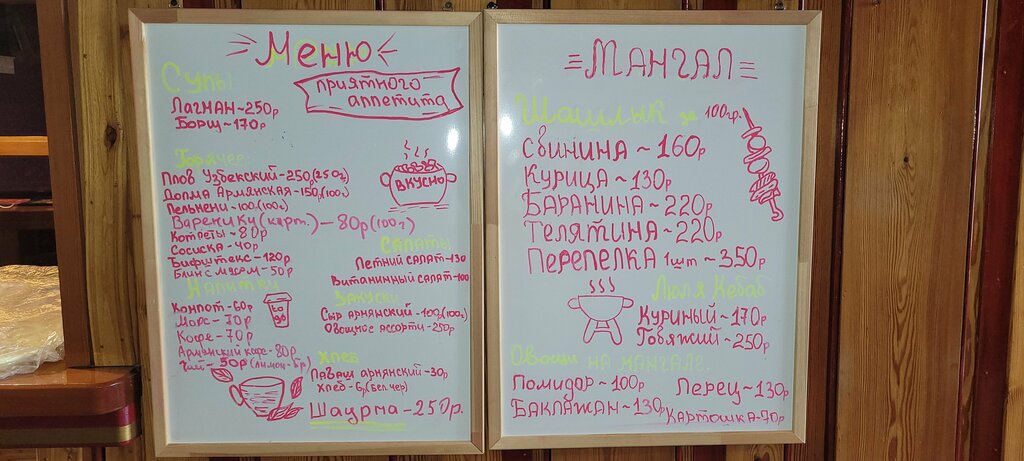 Меню
приятного
аппетита
Супы
Лагман~250р
Борщ~170р
Горячее:
Плов Узбекский-250р(250г)
Долма Армянская-150р(100г)
Пельмени-100р(100г)
Вареники(карт.)-80р(100г)
Котлеты~80р
Сосиска~40р
Бифштекс-120р
Блин с мясом-50р
вкусно
Салаты
Летний салат-130
Витаминный салат-100
Напитки
Компот-60р
Морс-70р
Кофе-70р
Армянский кофе-80р
Чай-50р(лимон-5р)
to
go
Закуски
Сыр армянский-100р(100г)
Овощное ассорти-250р
Хлеб
Лаваш армянский-30р
хлеб-6р(бел.чер)
Шаурма-250р.
Мангал
Шашлык за 100гр.
Свинина~160р
Курица~130р
Баранина~220р
Телятина~220р
Перепелка 1шт~350р
Люля Кебаб
Куриный~170р
Говяжий~250р
Овощи на мангале:
Помидор~100р
Перец~130р
Баклажан~130р
Картошка-70р